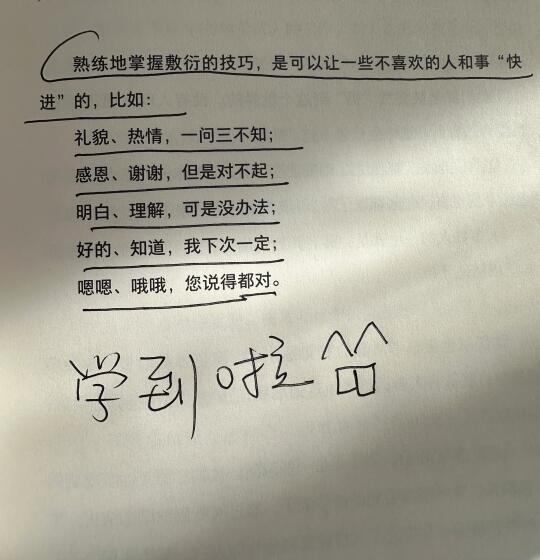 熟练地掌握敷衍的技巧，是可以让一些不喜欢的人和事“快
进”的，比如：
礼貌、热情，一问三不知；
感恩、谢谢，但是对不起；
明白、理解，可是没办法；
好的、知道，我下次一定；
嗯嗯、哦哦，您说得都对。
学到啦